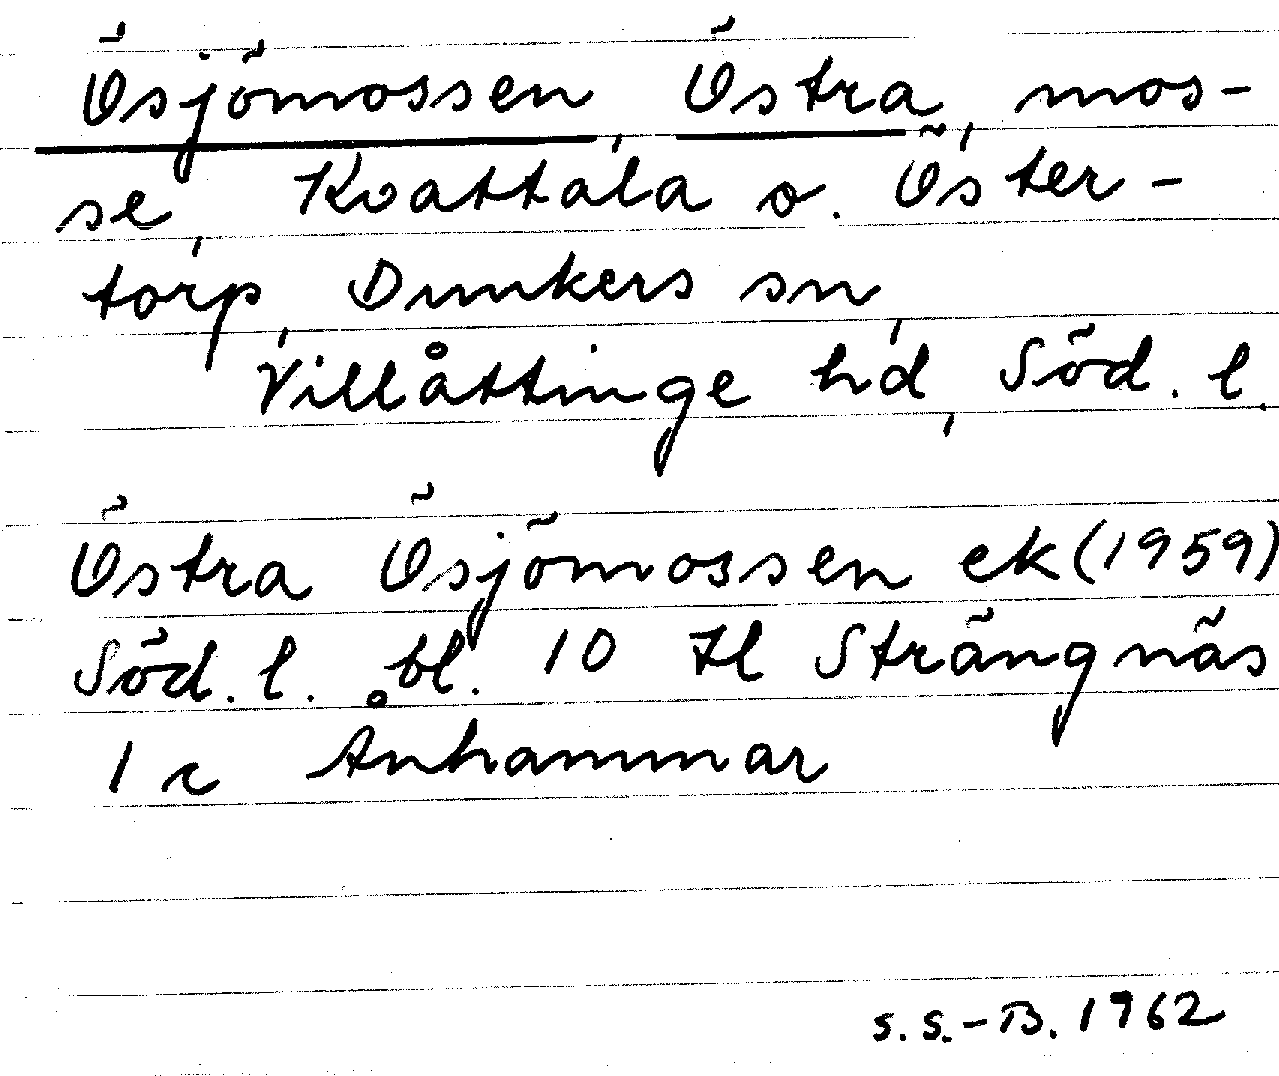 Ösjömossen, Östra, mos-
se, Kvattala o. Öster-
torp, Dunkers sn,
Villåttinge hd, Söd. l.
Östra Ösjömossen ek (1959)
Söd. l. bl. 10 H Strängnäs
1 c Ånhammar
S. S.-B. 1962